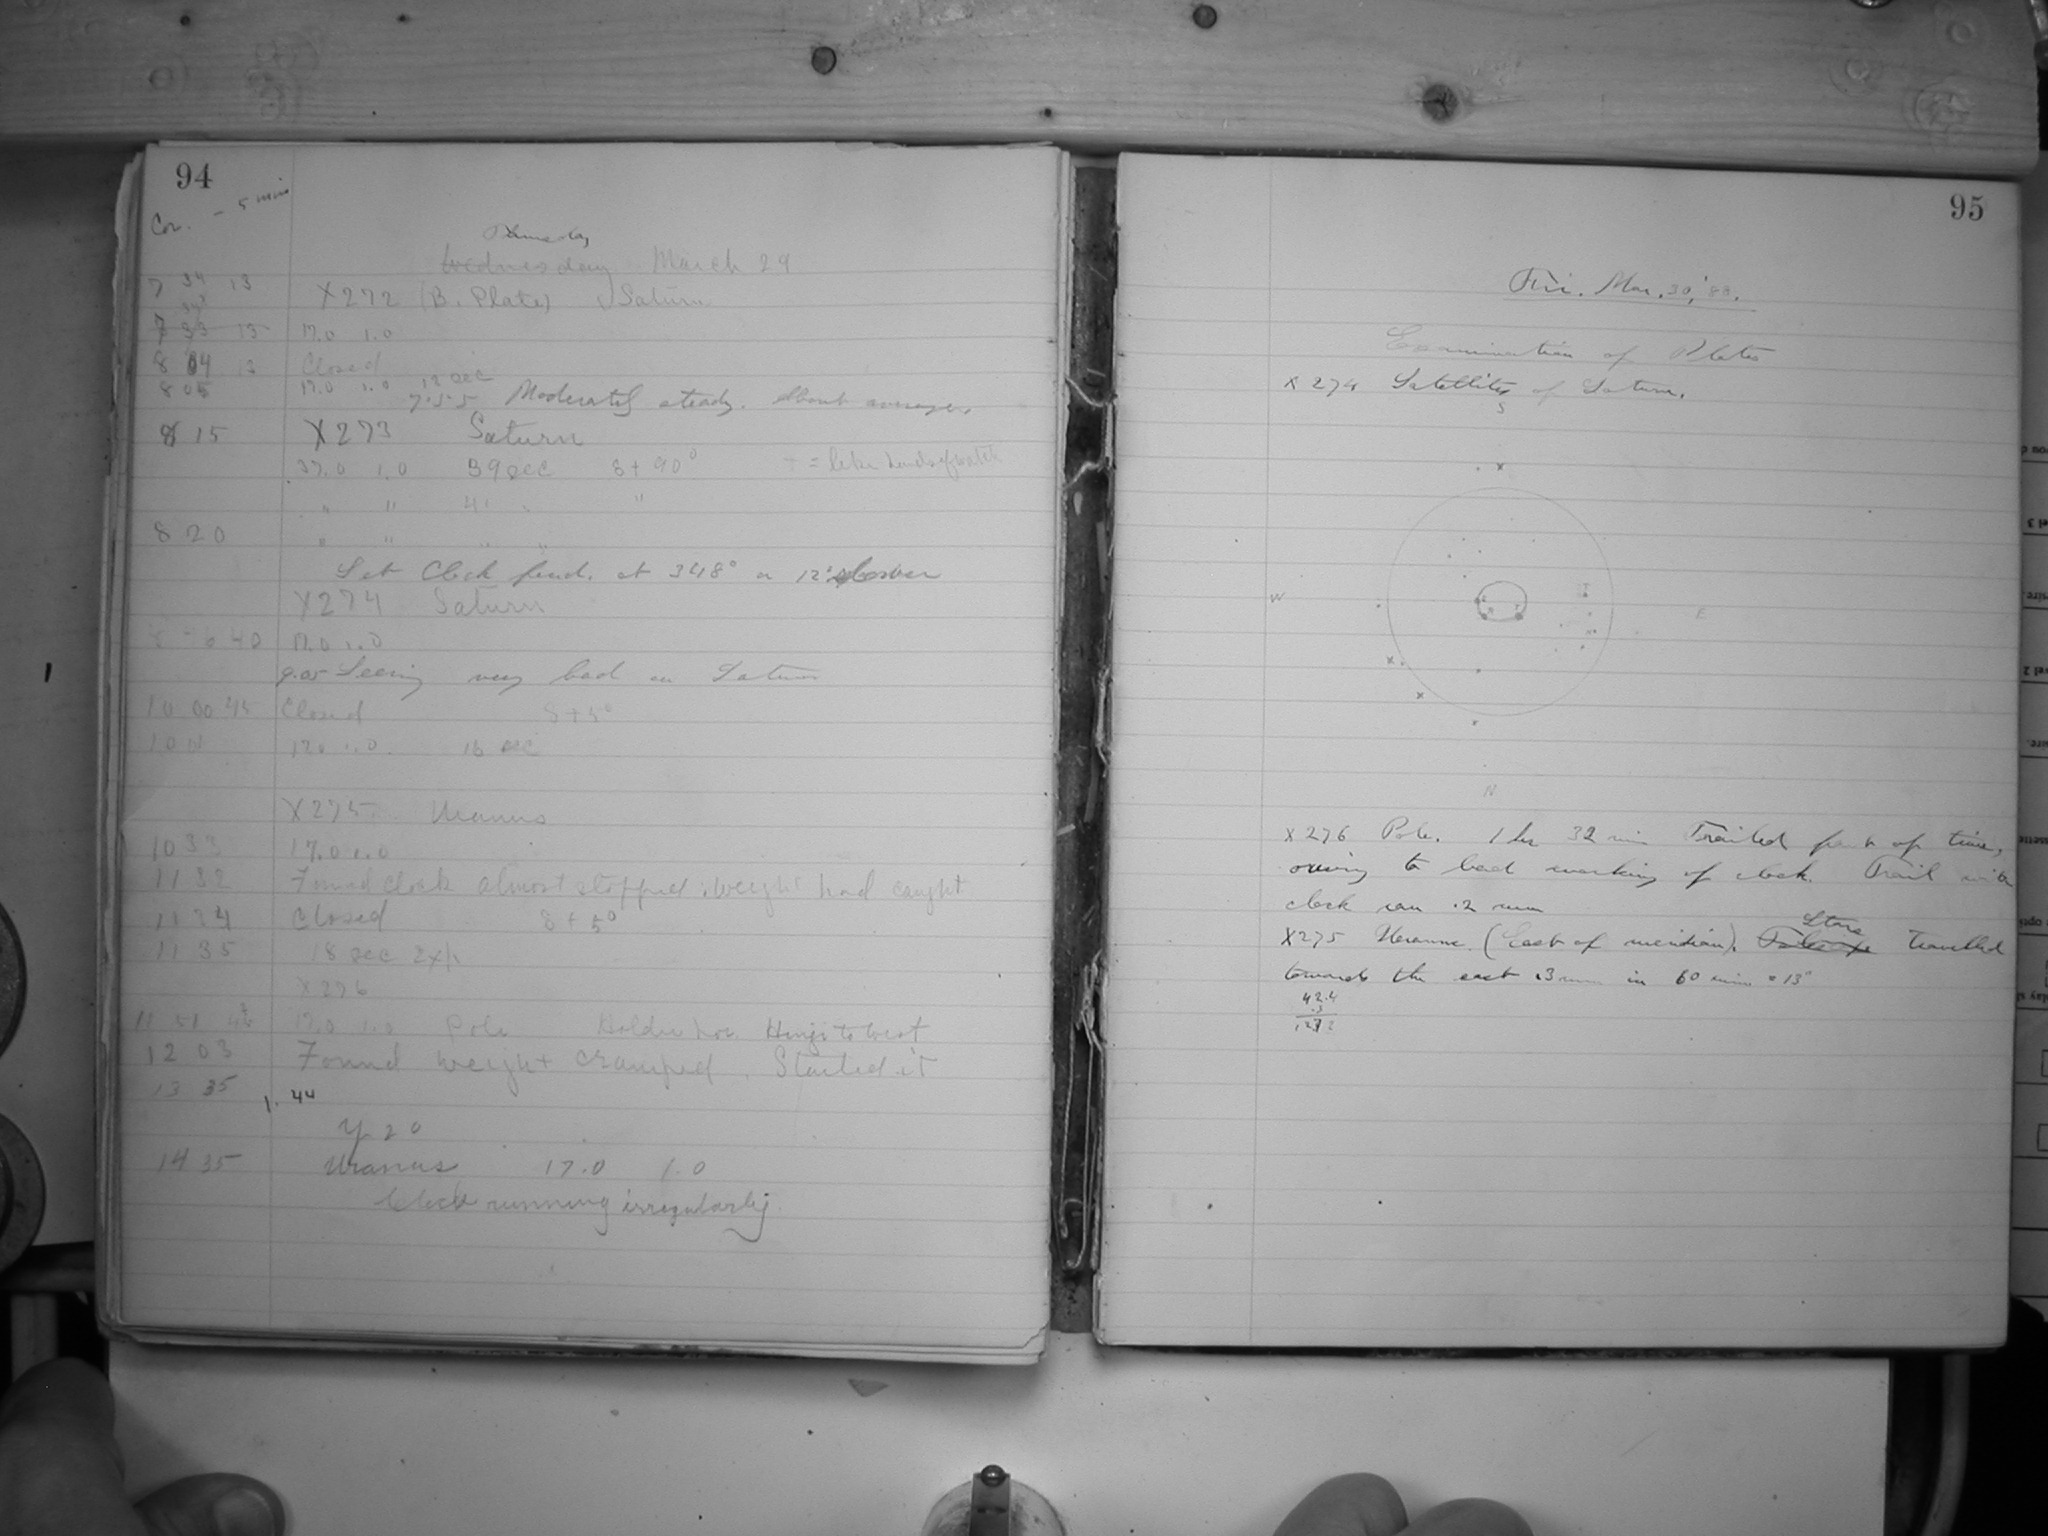 94
Cor. - 5 min
Thursday
Wednesday March 29
7 34 13 X272 (B. Plate) Saturn
17.0 1.0
8 04 13 Closed
8 05 17.0 1.0 12 sec
7.5.5 Moderately steady. About average.
8 15 X273 Saturn
37.0 1.0 39 sec 8+90° = like hands of watch
" " 41 "
8 20 " " " "
Set Clock pend. at 348° or 12° slower
X274 Saturn
17.0 1.0
9.05 Seeing very bad on Saturn
10 00 45 Closed 8+5°
10 11 17.0 1.0. 16 sec
X275 Uranus
10 33 17.0 1.0
11 32 Found clock almost stopped weight had caught
11 34 Closed 8+5°
11 35 18 sec Exp.
X276
11 51 17.0 1.0 Pole Holder hor. Hinge to west
12 03 Found weight cramped. Started it
13 35 1.44
Y 20
14 35 Uranus 17.0 1.0
Clock running irregularly.
95
Fri. Mar. 30, '88.
Examination of Plates
X274 Satellites of Saturn.
S
W
E
N
X276 Pole. 1 hr 32 min Trailed part of time,
owing to bad working of clock. Trail with
clock ran .2 mm
Stars
X275 Uranus. (East of meridian). travelled
towards the east .3 mm in 60 min = 13°
42.4
.3
12.72